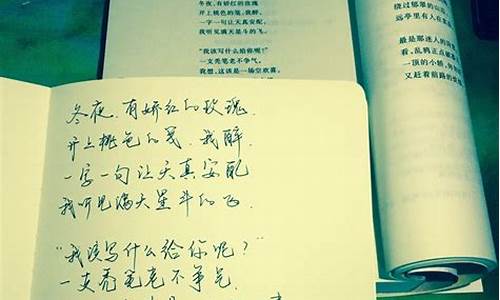 冬夜,有娇红的玫瑰
开上桃色的笺,我醉,
一字一句让天真安配,
我听见满天星斗的飞。
“我该写什么给你呢?”
一支秃笔老不争气。
我想,这该是一场空欢喜。
绕过郁翠的山
远亭里有人在
最是那迷人的
看,乱鸦正点
一顶的小轿,
又赶着前路的
冬夜,有娇红的玫瑰,
开上桃色的笺,我醉
一字一句让天真安配
我听见满天星斗的飞
“我该写什么给你呢?”
一支秃笔老不争气.